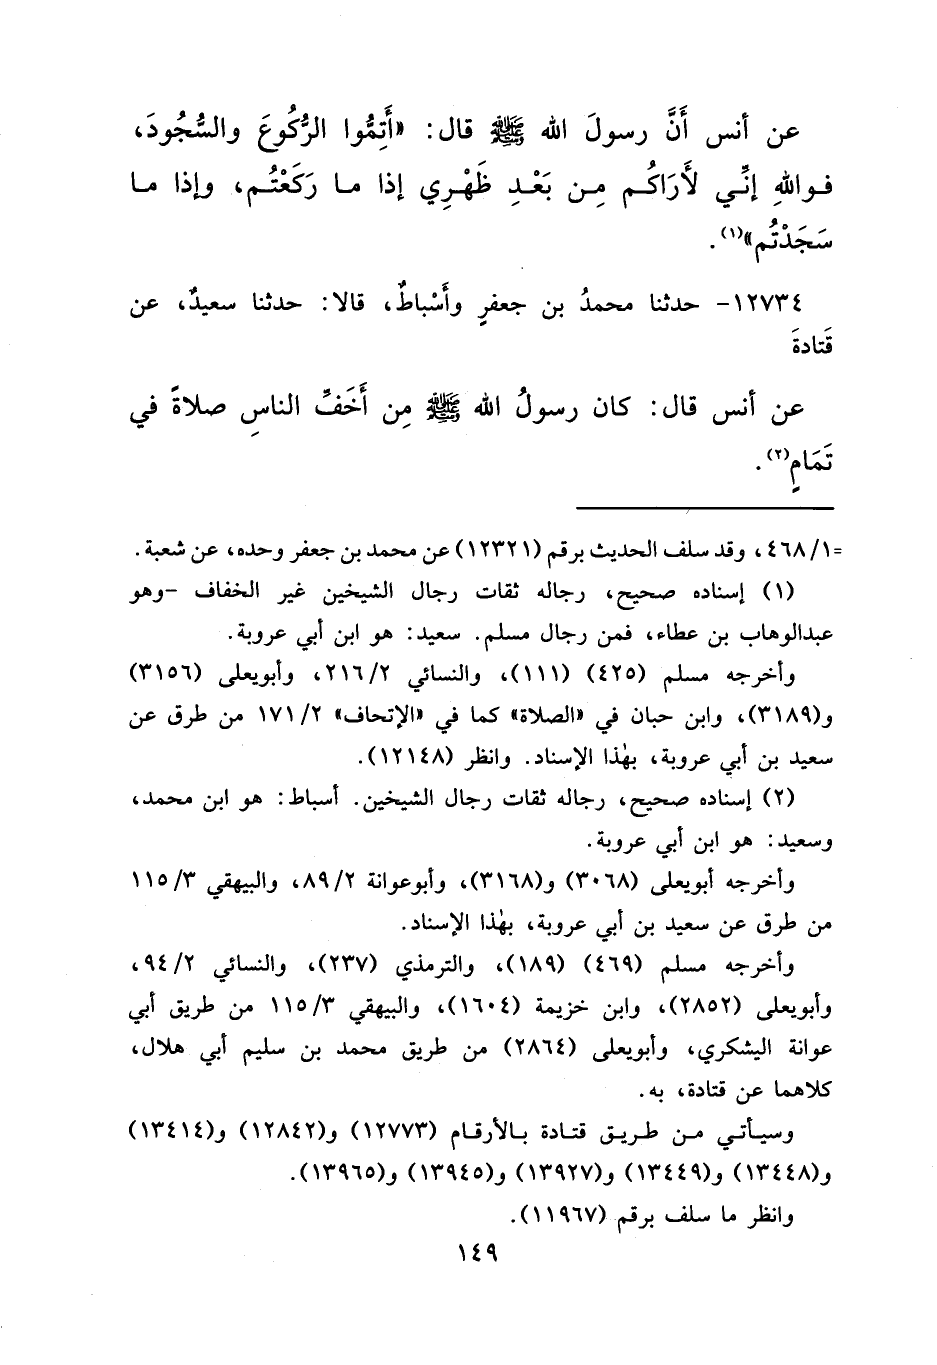 عن أنس أَنَّ رسولَ الله ﷺ قال: «أَتِمُّوا الرُّكُوعَ والسُّجُودَ،
فواللهِ إنِّي لأَرَاكُم مِن بَعْدِ ظَهْرِي إذا ما رَكَعْتُم، وإذا ما
سَجَدْتُم»(١).
١٢٧٣٤- حدثنا محمدُ بن جعفرٍ وأَسْباطٌ، قالا: حدثنا سعيدٌ، عن
قَتادةَ
عن أنس قال: كان رسولُ الله ﷺ مِن أَخَفِّ الناسِ صلاةً في
تَمَامٍ(٢).
=٤٦٨/١، وقد سلف الحديث برقم (١٢٣٢١) عن محمد بن جعفر وحده، عن شعبة.
(١) إسناده صحيح، رجاله ثقات رجال الشيخين غير الخفاف -وهو
عبدالوهاب بن عطاء، فمن رجال مسلم. سعيد: هو ابن أبي عروبة.
وأخرجه مسلم (٤٢٥) (١١١)، والنسائي ٢١٦/٢، وأبويعلى (٣١٥٦)
و(٣١٨٩)، وابن حبان في «الصلاة» كما في «الإتحاف» ١٧١/٢ من طرق عن
سعيد بن أبي عروبة، بهٰذا الإسناد. وانظر (١٢١٤٨).
(٢) إسناده صحيح، رجاله ثقات رجال الشيخين. أسباط: هو ابن محمد،
وسعيد: هو ابن أبي عروبة.
وأخرجه أبويعلى (٣٠٦٨) و(٣١٦٨)، وأبوعوانة ٨٩/٢، والبيهقي ١١٥/٣
من طرق عن سعيد بن أبي عروبة، بهٰذا الإسناد.
وأخرجه مسلم (٤٦٩) (١٨٩)، والترمذي (٢٣٧)، والنسائي ٩٤/٢،
وأبويعلى (٢٨٥٢)، وابن خزيمة (١٦٠٤)، والبيهقي ١١٥/٣ من طريق أبي
عوانة اليشكري، وأبويعلى (٢٨٦٤) من طريق محمد بن سليم أبي هلال،
كلاهما عن قتادة، به.
وسيأتي من طريق قتادة بالأرقام (١٢٧٧٣) و(١٢٨٤٢) و(١٣٤١٤)
و(١٣٤٤٨) و(١٣٤٤٩) و(١٣٩٢٧) و(١٣٩٤٥) و(١٣٩٦٥).
وانظر ما سلف برقم (١١٩٦٧).
١٤٩